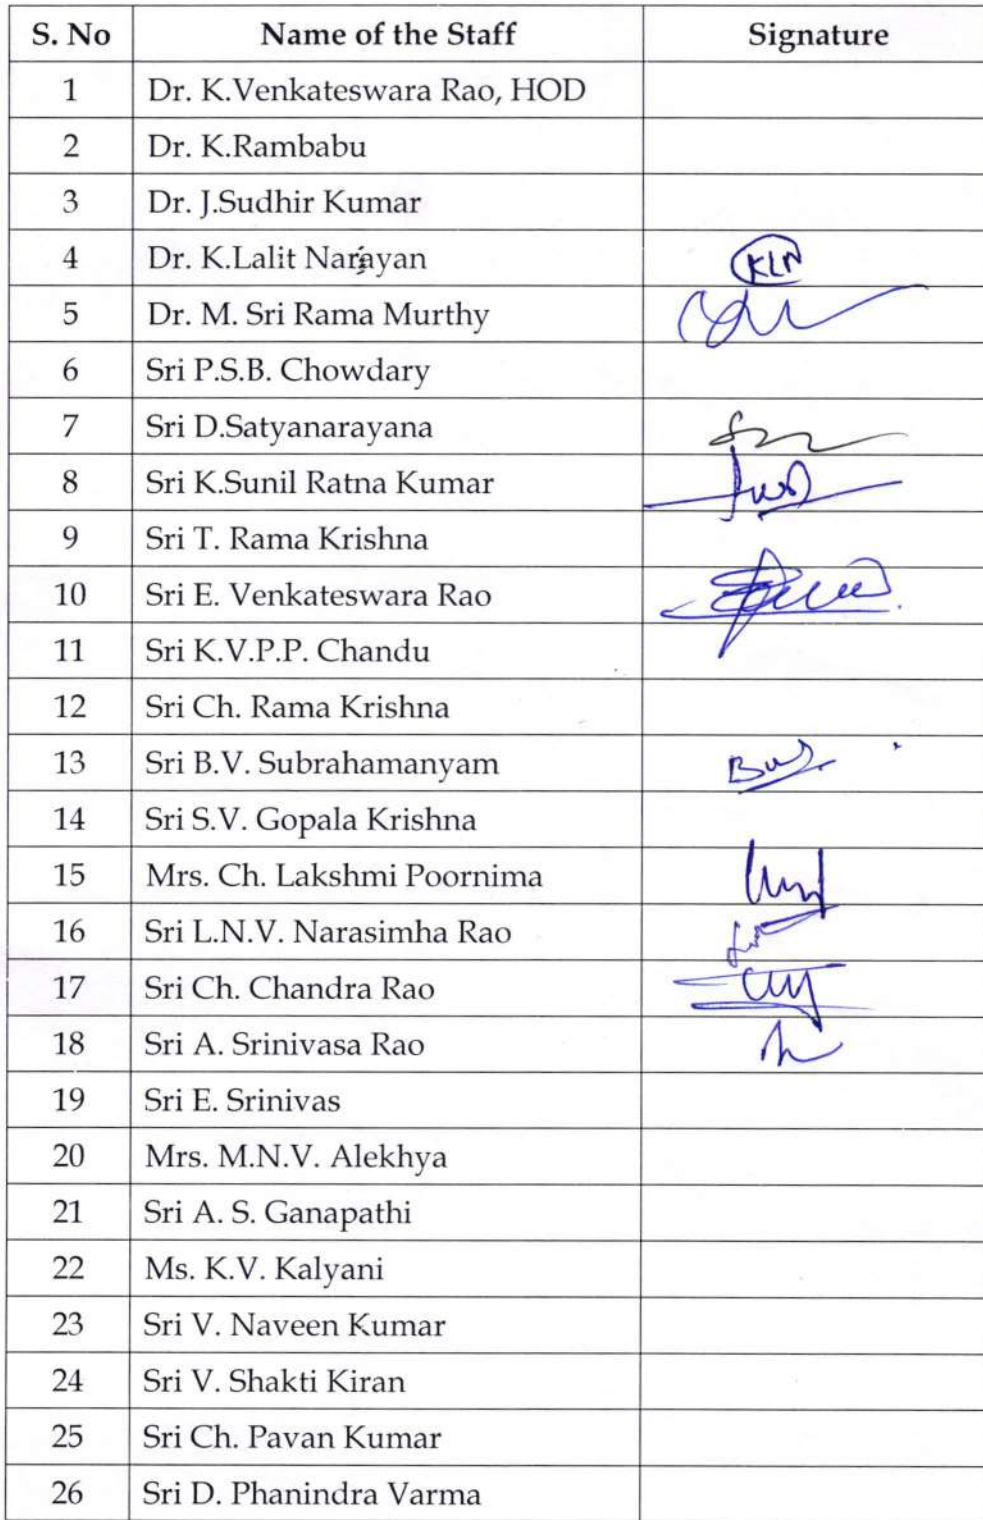 S. No Name of the Staff Signature
1 Dr. K.Venkateswara Rao, HOD
2 Dr. K.Rambabu
3 Dr. J.Sudhir Kumar
4 Dr. K.Lalit Narayan KLN
5 Dr. M. Sri Rama Murthy
6 Sri P.S.B. Chowdary
7 Sri D.Satyanarayana
8 Sri K.Sunil Ratna Kumar
9 Sri T. Rama Krishna
10 Sri E. Venkateswara Rao
11 Sri K.V.P.P. Chandu
12 Sri Ch. Rama Krishna
13 Sri B.V. Subrahamanyam
14 Sri S.V. Gopala Krishna
15 Mrs. Ch. Lakshmi Poornima
16 Sri L.N.V. Narasimha Rao
17 Sri Ch. Chandra Rao
18 Sri A. Srinivasa Rao
19 Sri E. Srinivas
20 Mrs. M.N.V. Alekhya
21 Sri A. S. Ganapathi
22 Ms. K.V. Kalyani
23 Sri V. Naveen Kumar
24 Sri V. Shakti Kiran
25 Sri Ch. Pavan Kumar
26 Sri D. Phanindra Varma